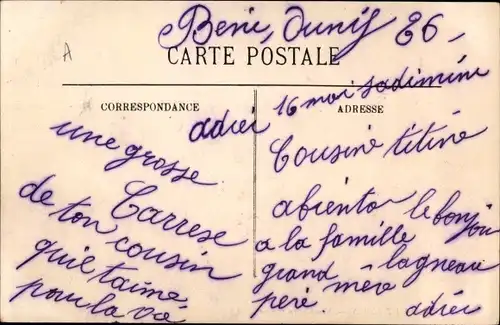 Beni, Dunif 26,
CARTE POSTALE
A
CORRESPONDANCE
ADRESSE
adiei 16 moi
une grosse
Carrese
de ton cousin
qui t'aime
pour la vie
Cousine titine
abiento le bonjou
a la famille
grand mère lagneau
peré adiei